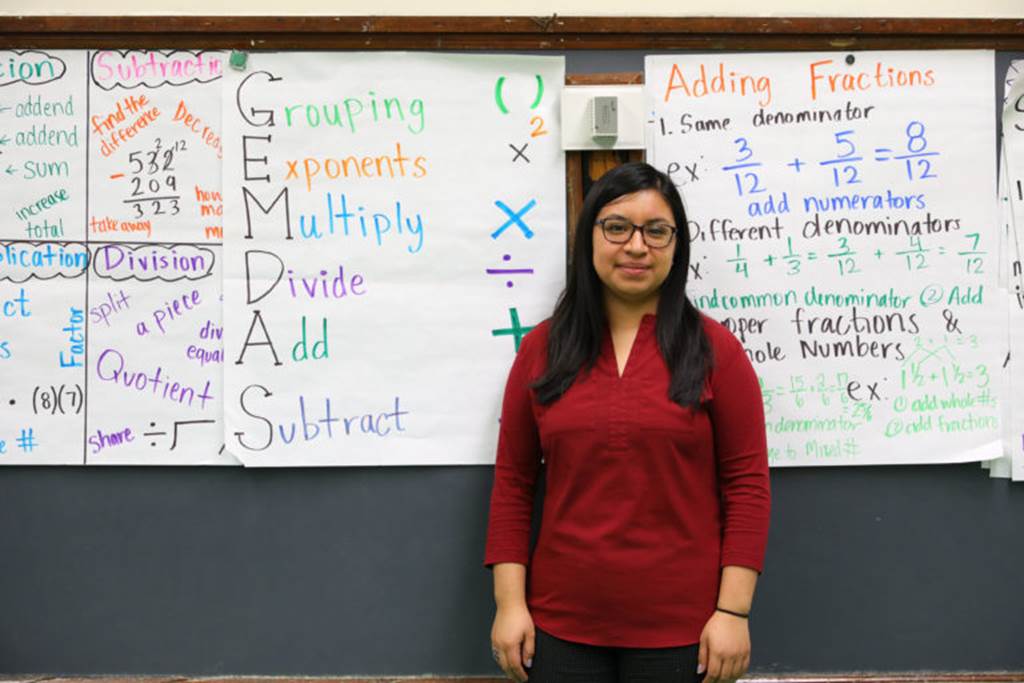 Subtractio
addend
addend
sum
increase
total
find the
difference
Decrea
2 12
532
- 209
323
take away
Division
ct
Factor
(8)(7)
#
split
a piece
div
equal
Quotient
share ÷
Grouping ( )
Exponents x 2
Multiply ×
Divide ÷
Add +
Subtract
Adding Fractions
1. Same denominator
ex: 3/12 + 5/12 = 8/12
add numerators
Different denominators
x: 1/4 + 1/3 = 3/12 + 4/12 = 7/12
ind common denominator ② Add
oper fractions &
hole Numbers
2 + 1 = 3
ex: 1 1/2 + 1 1/2 = 3
① add whole #s
② add fractions
denominator
to Mixed #